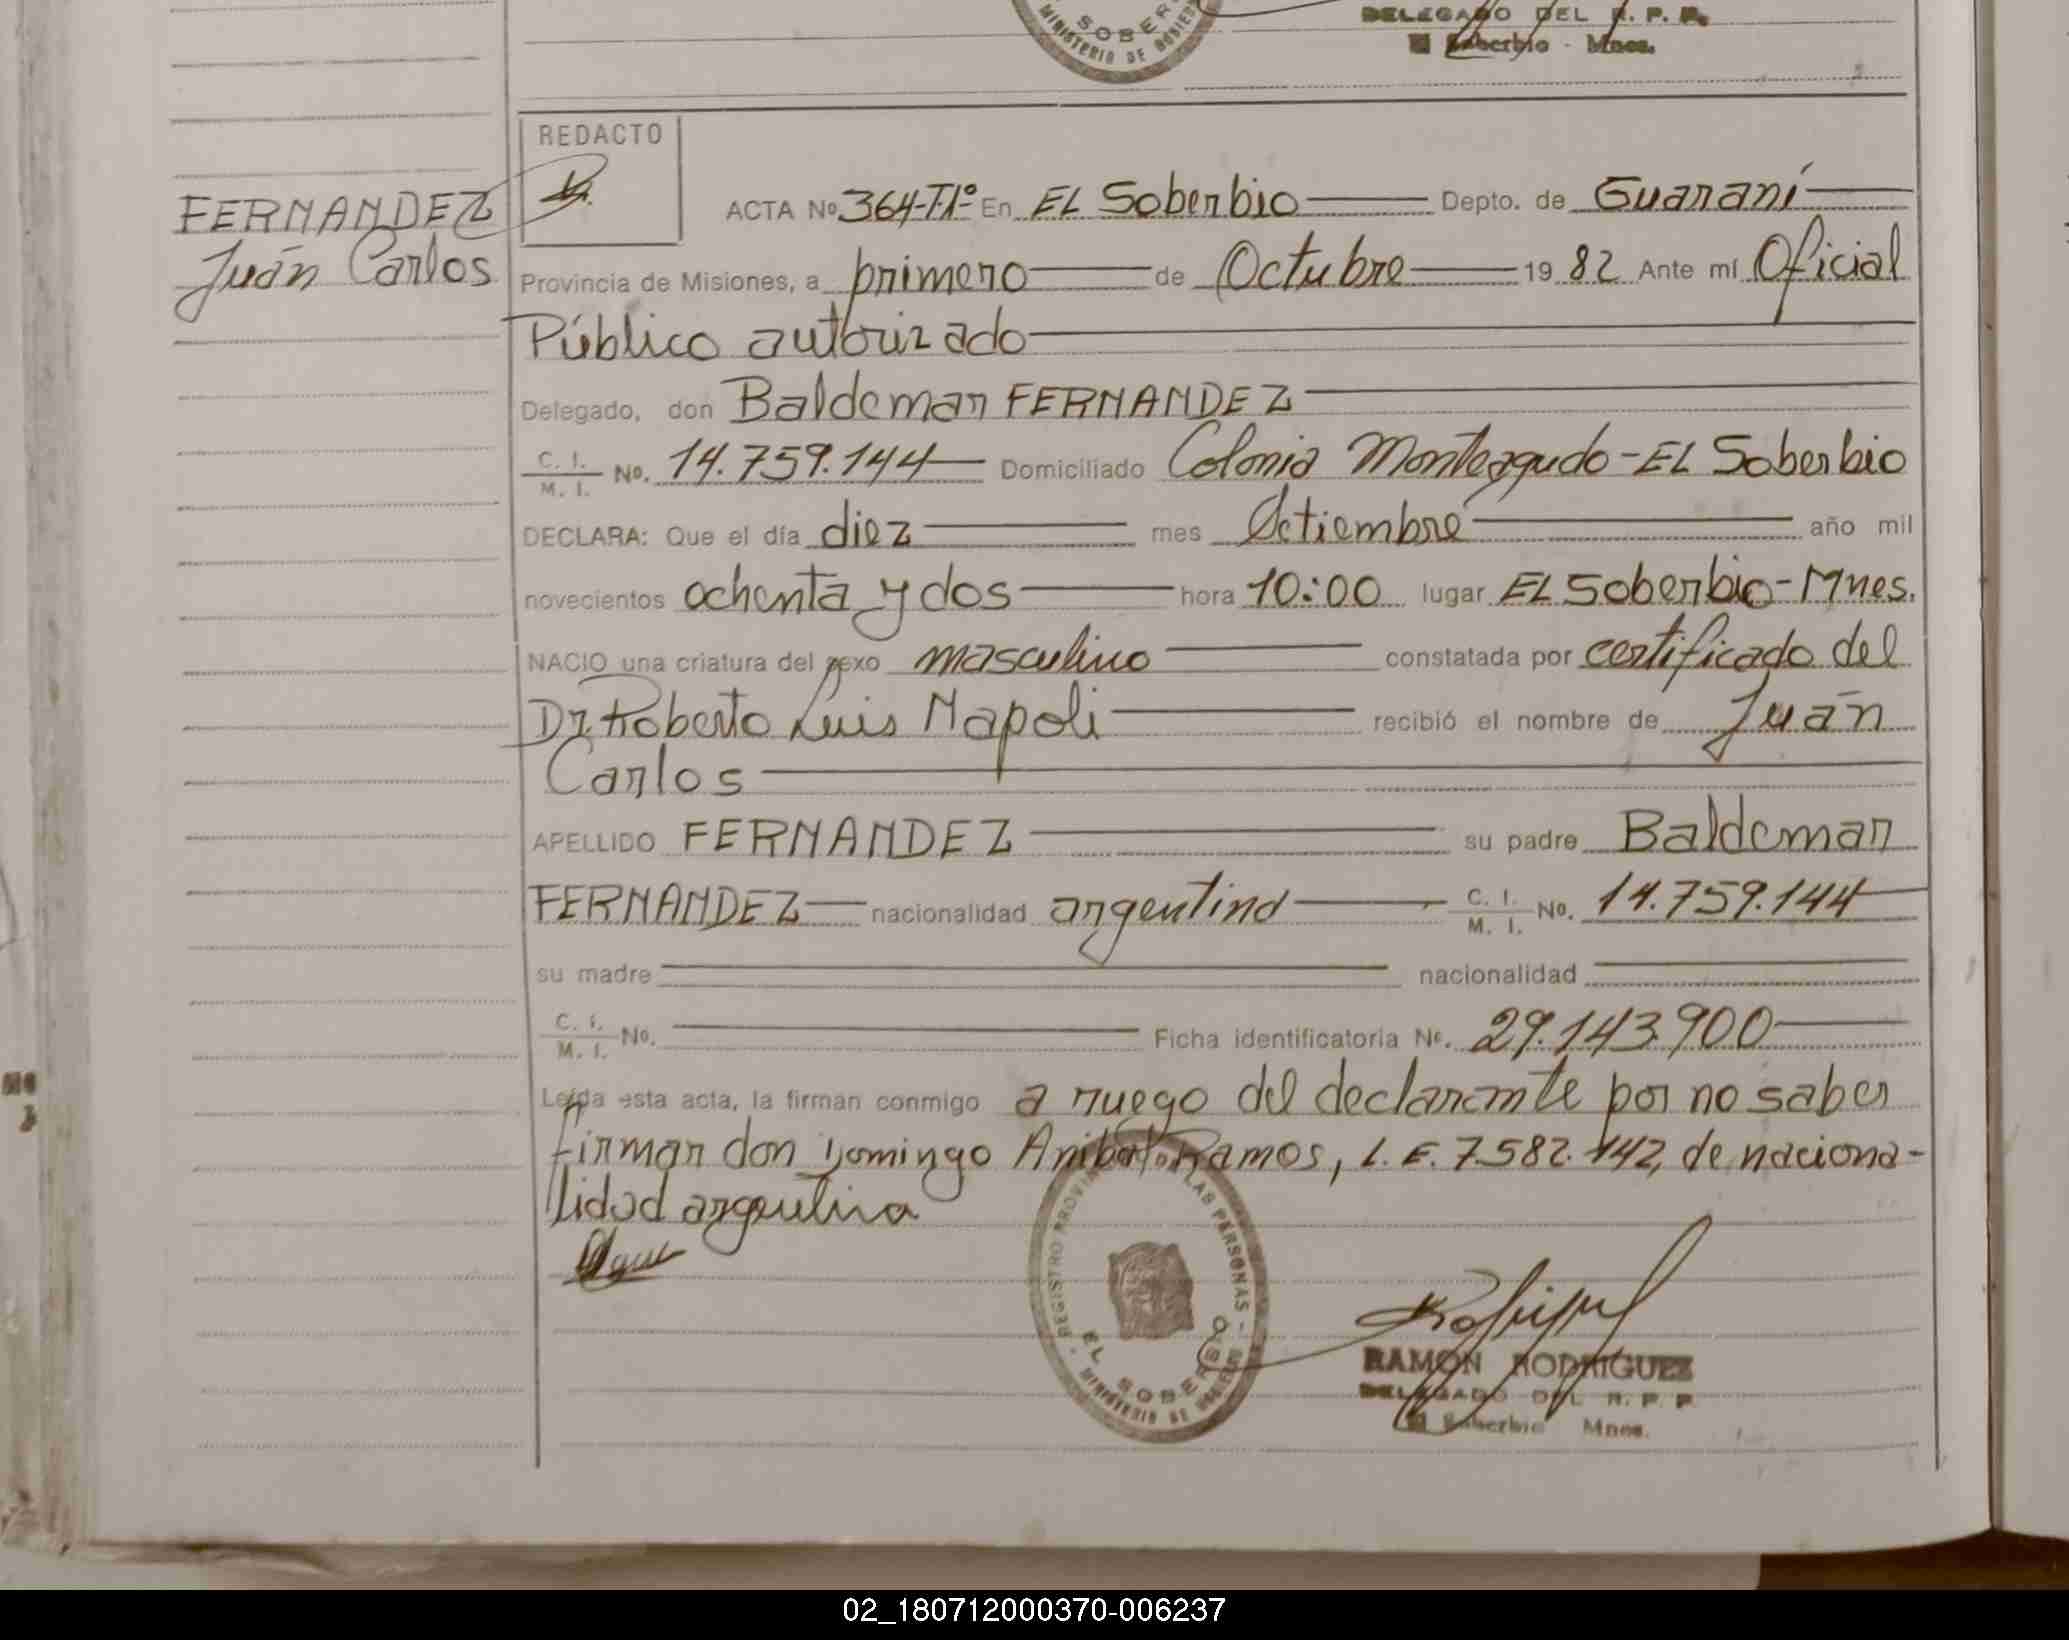 SOBER
MINISTERIO DE GOBIE
DELEGADO DEL R. P. P.
El Soberbio - Mnes.
REDACTO
FERNANDEZ
Juán Carlos
ACTA No 364-T.1º En EL Soberbio Depto. de Guaraní
Provincia de Misiones, a primero de Octubre 19 82 Ante mí Oficial
Público autorizado
Delegado, don Baldemar FERNANDEZ
C. I. / M. I. No. 14.759.144 Domiciliado Colonia Monteagudo-EL Soberbio
DECLARA: Que el día diez mes Setiembre año mil
novecientos ochenta y dos hora 10:00 lugar EL Soberbio-Mnes.
NACIO una criatura del sexo masculino constatada por certificado del
Dr. Roberto Luis Napoli recibió el nombre de Juán
Carlos
APELLIDO FERNANDEZ su padre Baldemar
FERNANDEZ nacionalidad argentino C. I. / M. I. No. 14.759.144
su madre nacionalidad
C. I. / M. I. No. Ficha identificatoria No. 29.143.900
Leída esta acta, la firman conmigo a ruego del declarante por no saber
firmar don Domingo Anibal Ramos, L.E. 7.582.142, de naciona-
lidad argentina
REGISTRO PROVIN LAS PERSONAS
EL SOBERBIO
MINISTERIO DE GOBIERNO
RAMON RODRIGUEZ
DELEGADO DEL R. P. P.
El Soberbio Mnes.
02_180712000370-006237